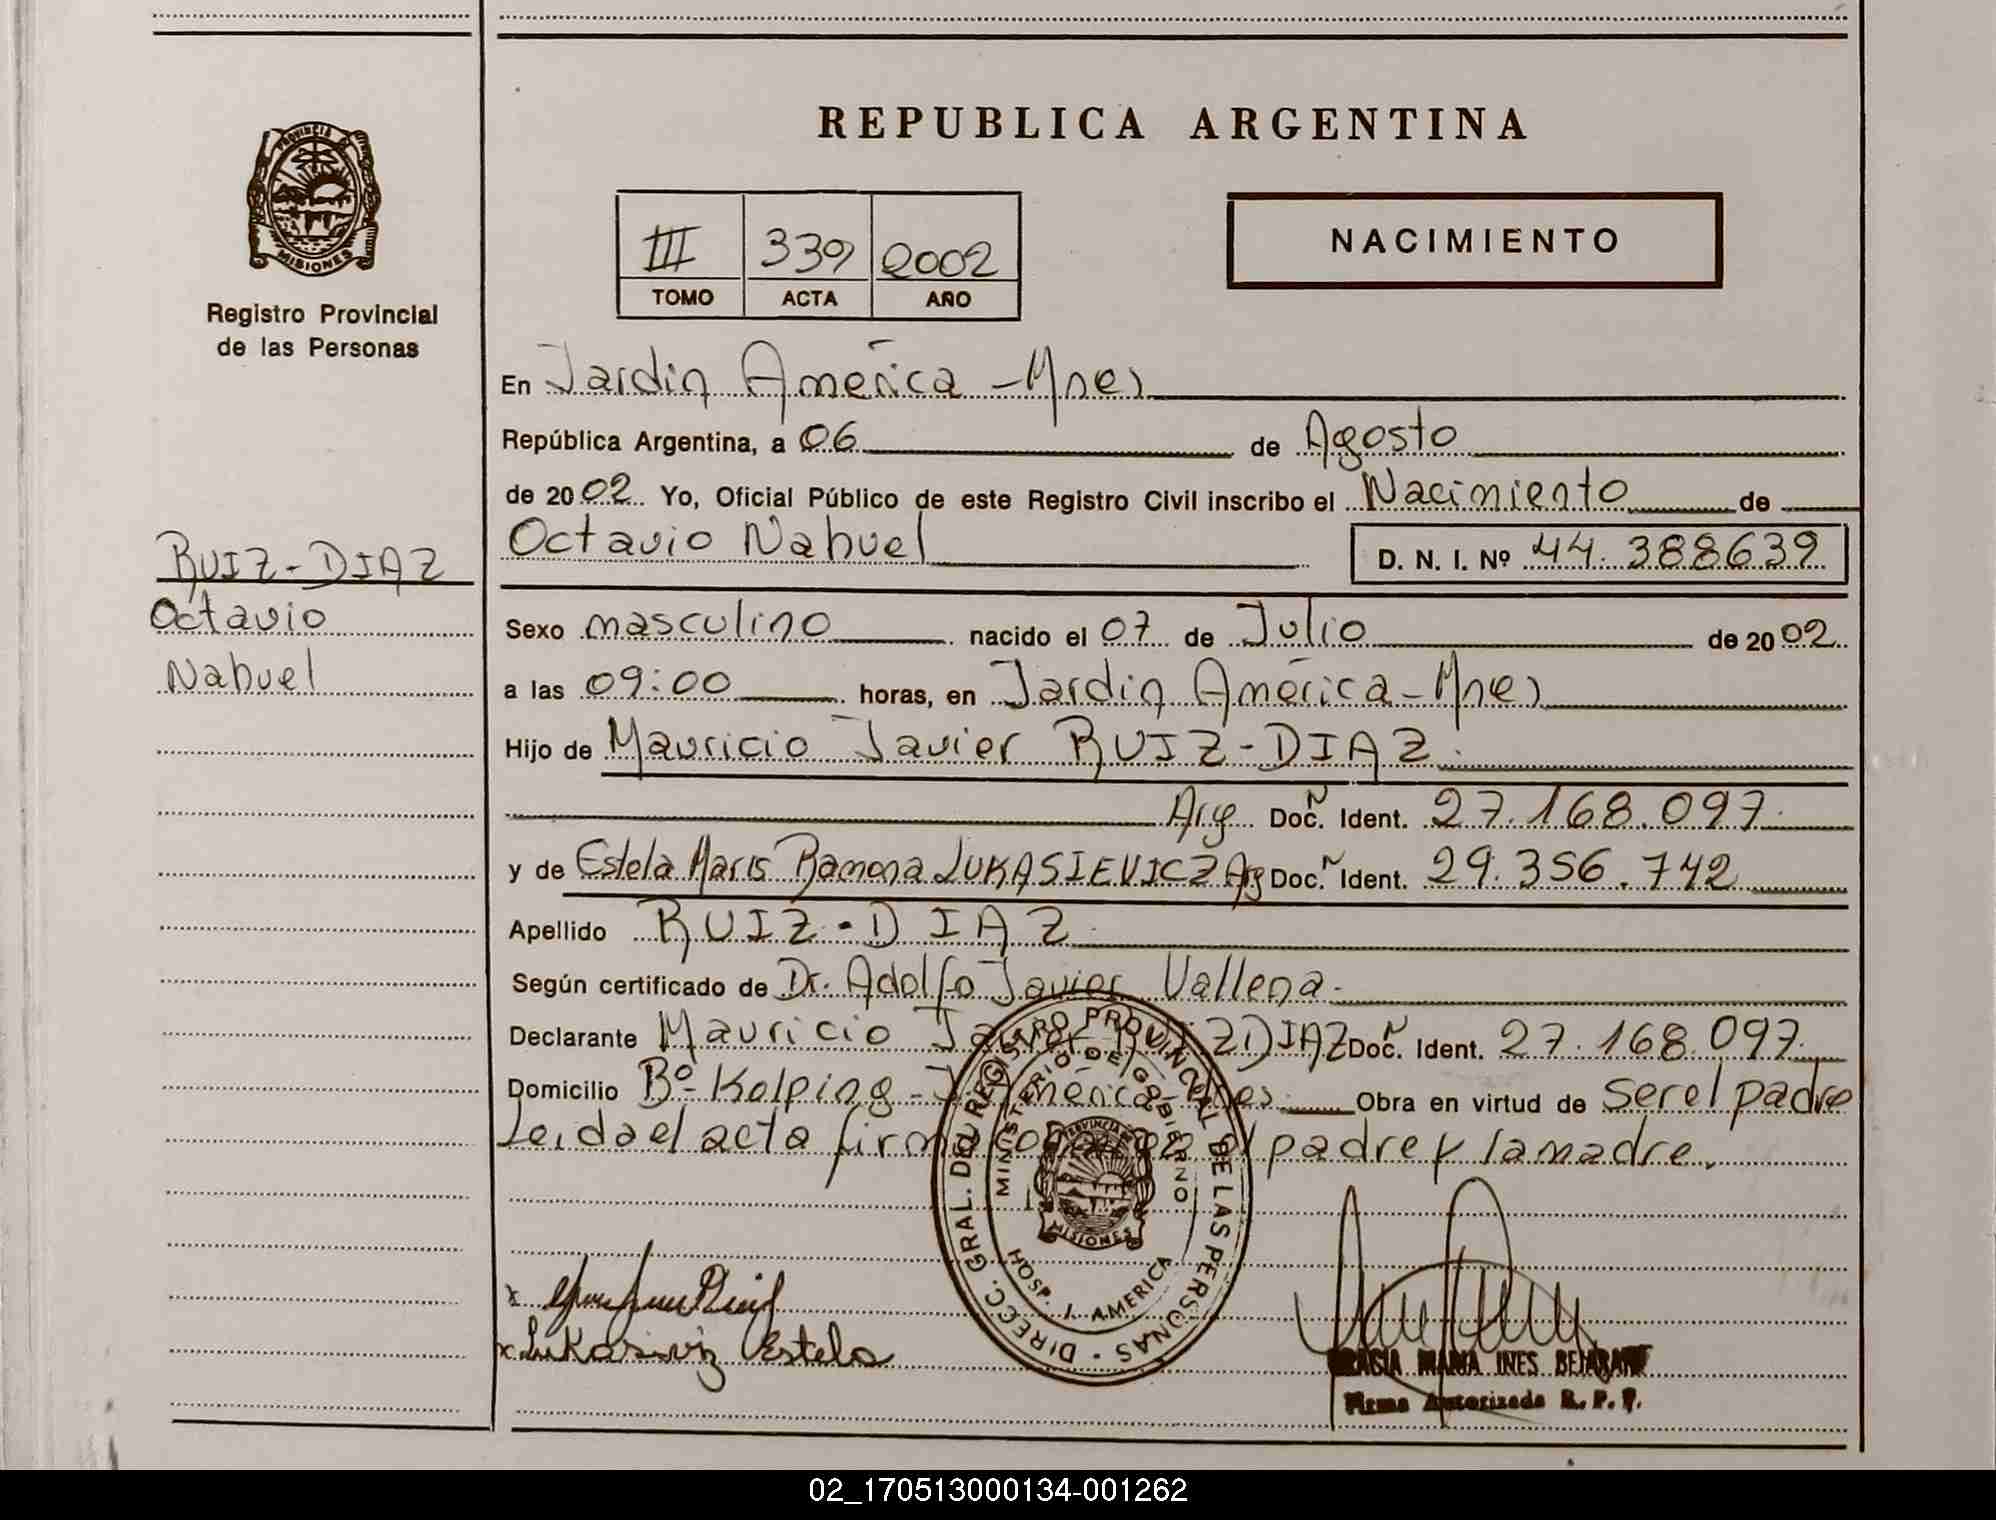 REPUBLICA ARGENTINA
PROVINCIA DE
MISIONES
Registro Provincial
de las Personas
III 339 2002
TOMO ACTA AÑO
NACIMIENTO
En Jardin América - Mnes
República Argentina, a 06 de Agosto
de 2002 Yo, Oficial Público de este Registro Civil inscribo el Nacimiento de
Octavio Nahuel D. N. I. Nº 44.388639
RUIZ-DIAZ
Octavio
Nahuel
Sexo masculino nacido el 07 de Julio de 2002
a las 09:00 horas, en Jardin América - Mnes
Hijo de Mauricio Javier RUIZ-DIAZ.
Arg Doc. Ident. 27.168.097.
y de Estela Maris Ramona LUKASIEVICZ Arg Doc. Ident. 29.356.742
Apellido RUIZ-DIAZ.
Según certificado de Dr. Adolfo Javier Vallena.
Declarante Mauricio Javier RUIZ DIAZ Doc. Ident. 27.168.097.
Domicilio Bº Kolping - J. América - Mnes. Obra en virtud de ser el padre
Leida el acta firma el padre y la madre.
DIRECC. GRAL. DEL REGISTRO PROVINCIAL DE LAS PERSONAS
MINISTERIO DE GOBIERNO
PROVINCIA DE
MISIONES
HOSP. J. AMERICA
x
x Lukasieviz Estela
GRACIA MARIA INES BEJARANO
Firma Autorizada R. P. P.
02_170513000134-001262